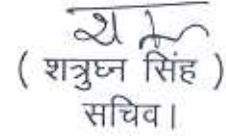 ( शत्रुघ्न सिंह )
सचिव।